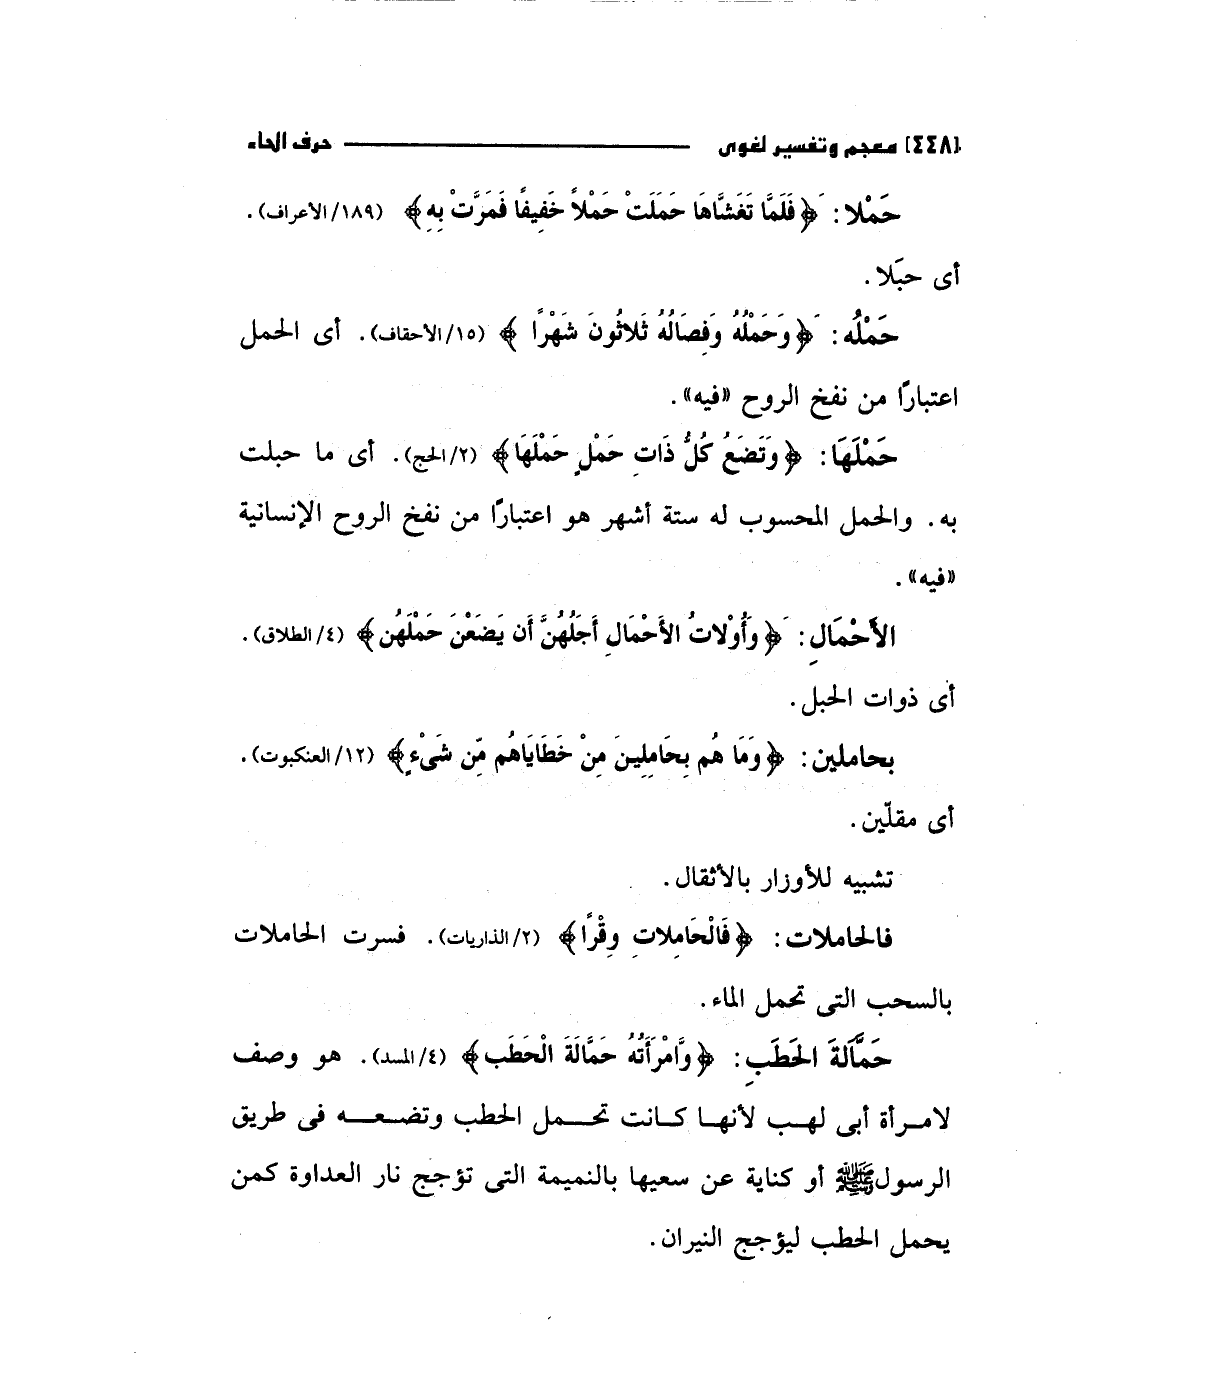 [٤٤٨] معجم وتفسير لغوى حرف الحاء
حَمْلا: ﴿فَلَمَّا تَغَشَّاهَا حَمَلَتْ حَمْلاً خَفِيفًا فَمَرَّتْ بِهِ﴾ (١٨٩/الأعراف).
أى حبَلا.
حَمْلُه: ﴿وَحَمْلُهُ وَفِصَالُهُ ثَلاثُونَ شَهْرًا﴾ (١٥/الأحقاف). أى الحمل
اعتبارًا من نفخ الروح «فيه».
حَمْلَهَا: ﴿وَتَضَعُ كُلُّ ذَاتِ حَمْلٍ حَمْلَهَا﴾ (٢/الحج). أى ما حبلت
به. والحمل المحسوب له ستة أشهر هو اعتبارًا من نفخ الروح الإنسانية
«فيه».
الأَحْمَالِ: ﴿وَأُوْلاتُ الأَحْمَالِ أَجَلُهُنَّ أَن يَضَعْنَ حَمْلَهُن﴾ (٤/الطلاق).
أى ذوات الحبل.
بحاملين: ﴿وَمَا هُم بِحَامِلِينَ مِنْ خَطَايَاهُم مِّن شَىْءٍ﴾ (١٢/العنكبوت).
أى مقلّين.
تشبيه للأوزار بالأثقال.
فالحاملات: ﴿فَالْحَامِلاتِ وِقْرًا﴾ (٢/الذاريات). فسرت الحاملات
بالسحب التى تحمل الماء.
حَمَّالَةَ الحَطَبِ: ﴿وَامْرَأَتُهُ حَمَّالَةَ الْحَطَبِ﴾ (٤/المسد). هو وصف
لامرأة أبى لهب لأنها كانت تحمل الحطب وتضعه فى طريق
الرسول ﷺ أو كناية عن سعيها بالنميمة التى تؤجج نار العداوة كمن
يحمل الحطب ليؤجج النيران.